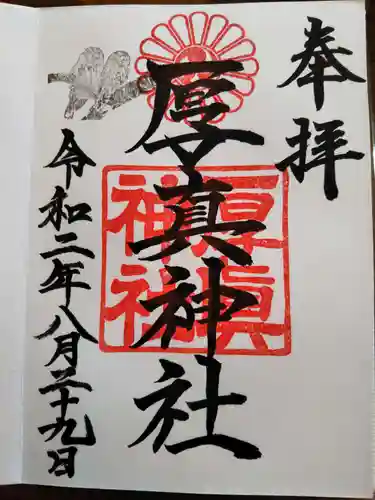 奉拝
厚真神社
厚真
神社
令和二年八月二十九日